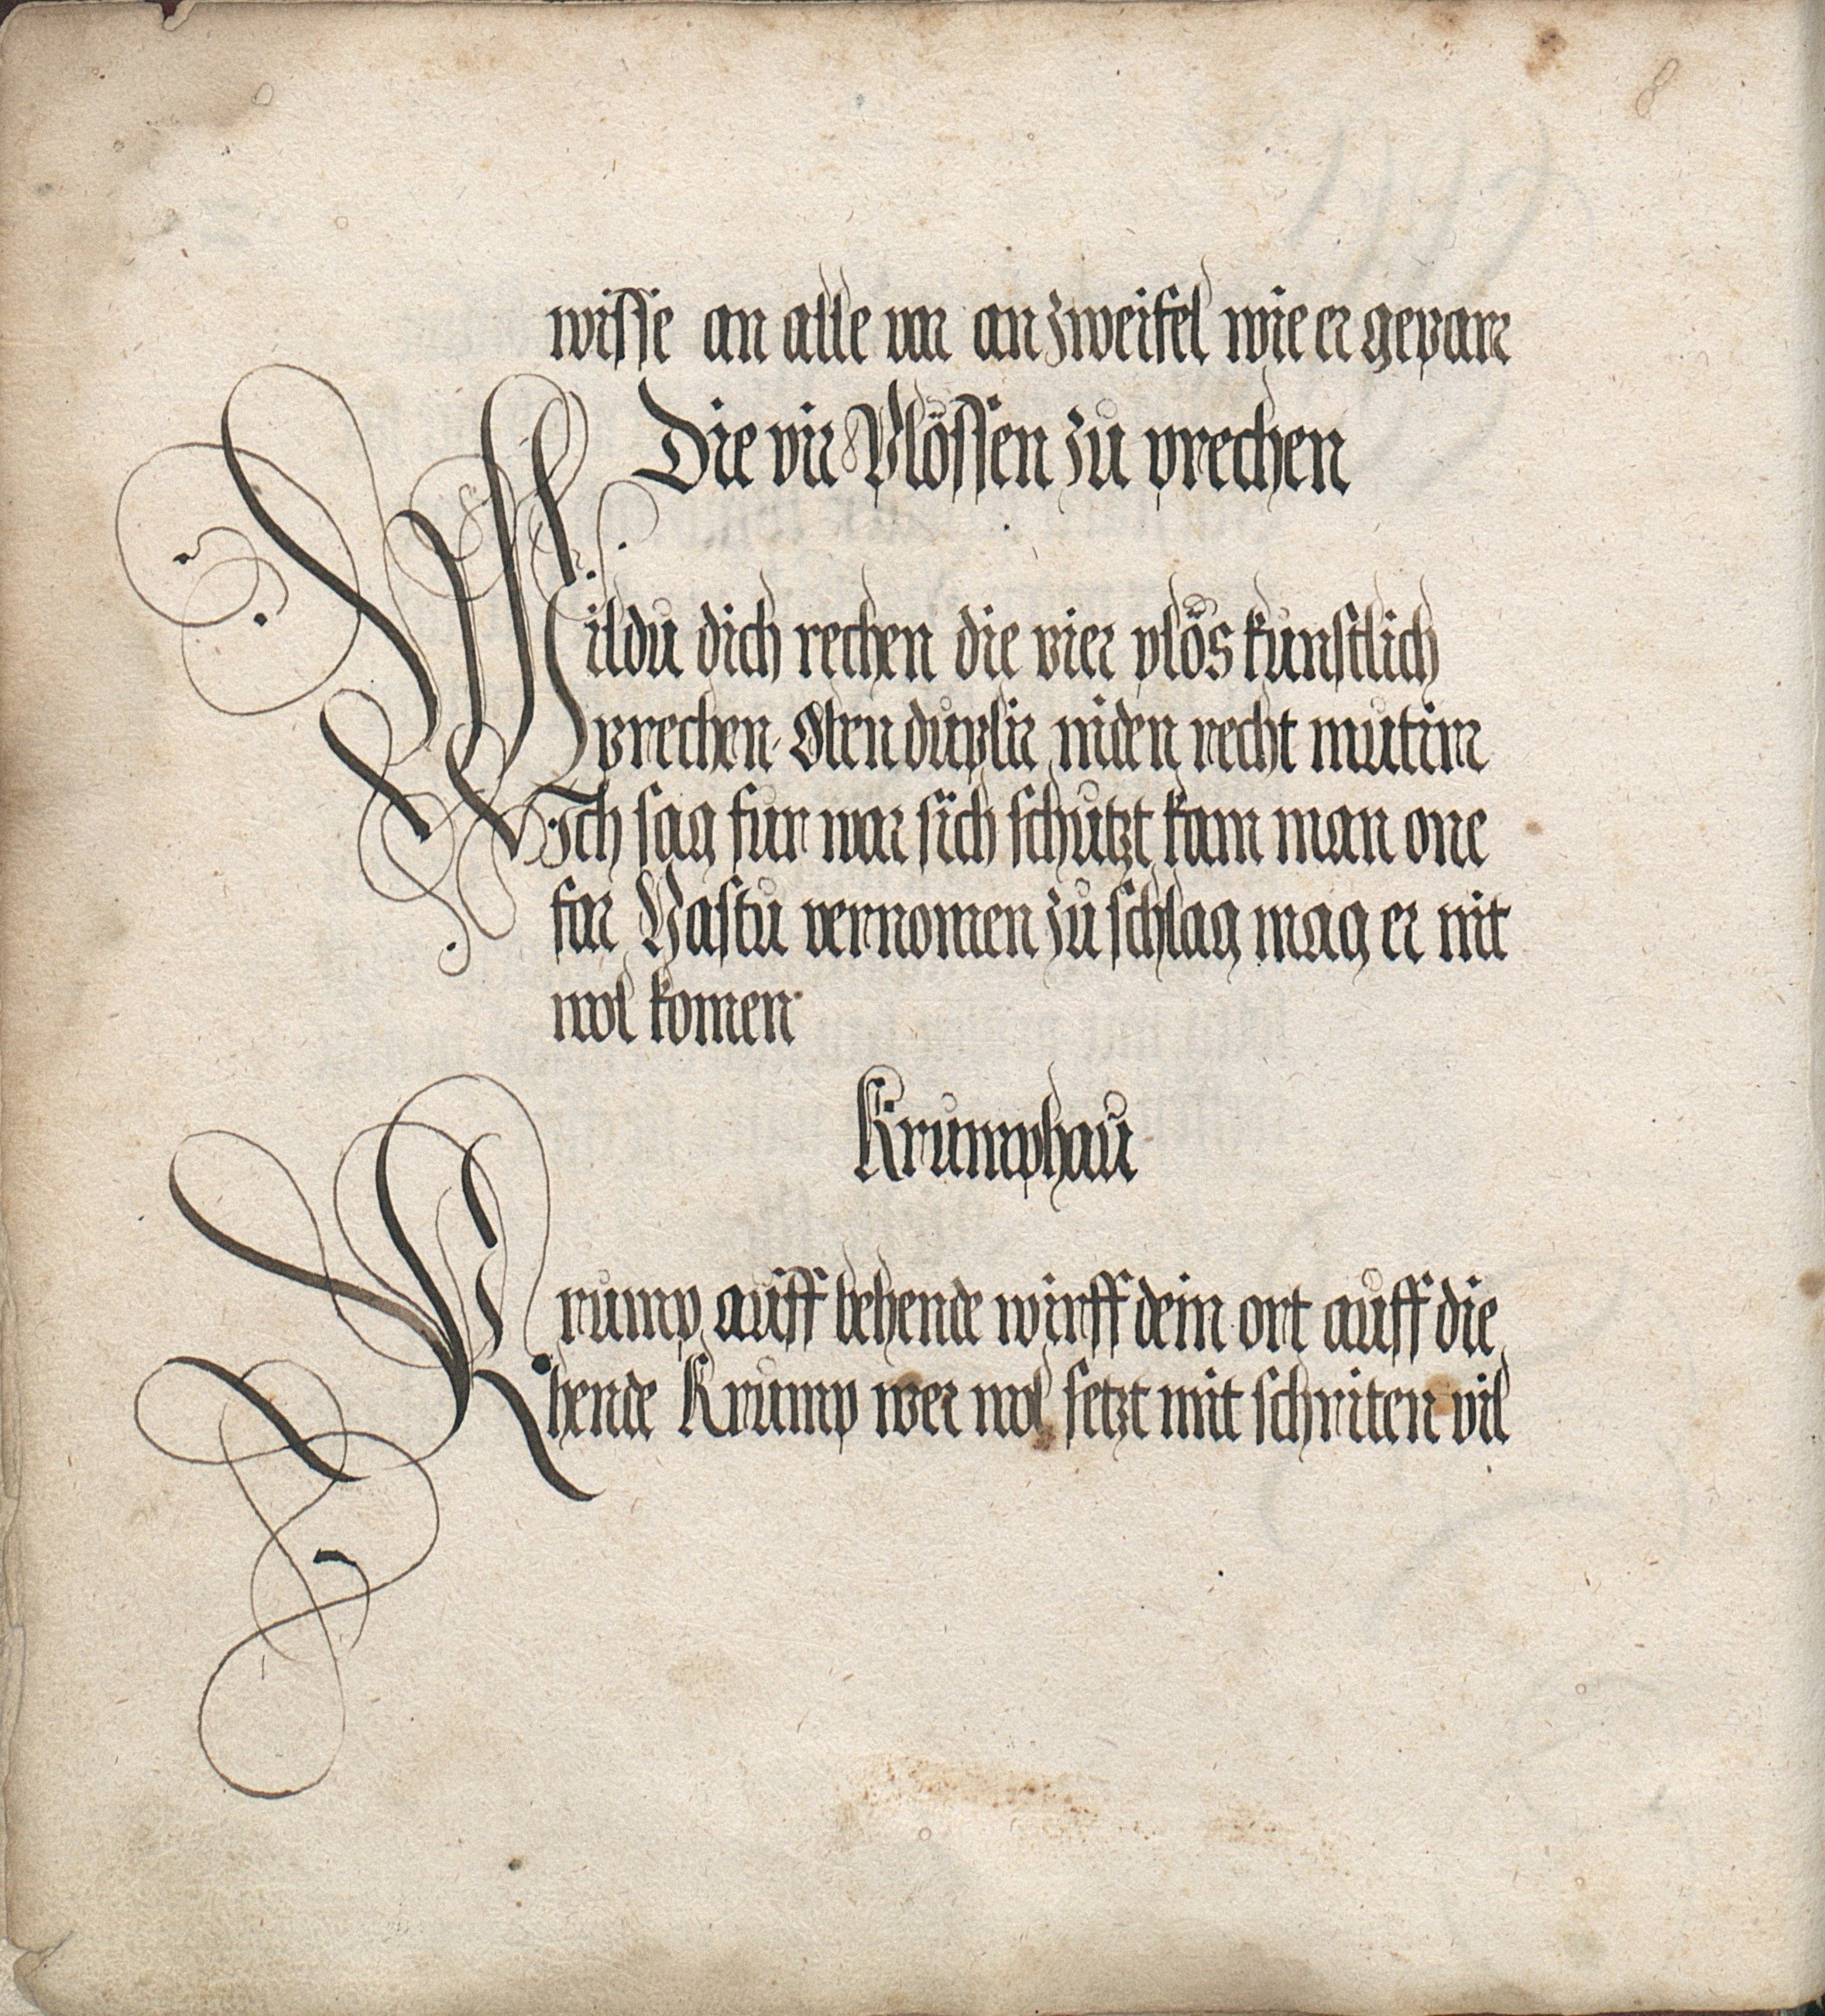 8
wisse an alle var an zweifel wie er gepare
Die vir Plössen zu prechen
Wildu dich rechen die vier plös kunstlich
prechen. Oben duplir niden recht mutirr
Ich sag fur war sich schutzt kam man one
far Hastu vernomen zu schlag mag er nit
wol komen
Krumphau
Krump auff behende wirff dein ort auff die
hende Krump wer wol setzt mit schriten vil